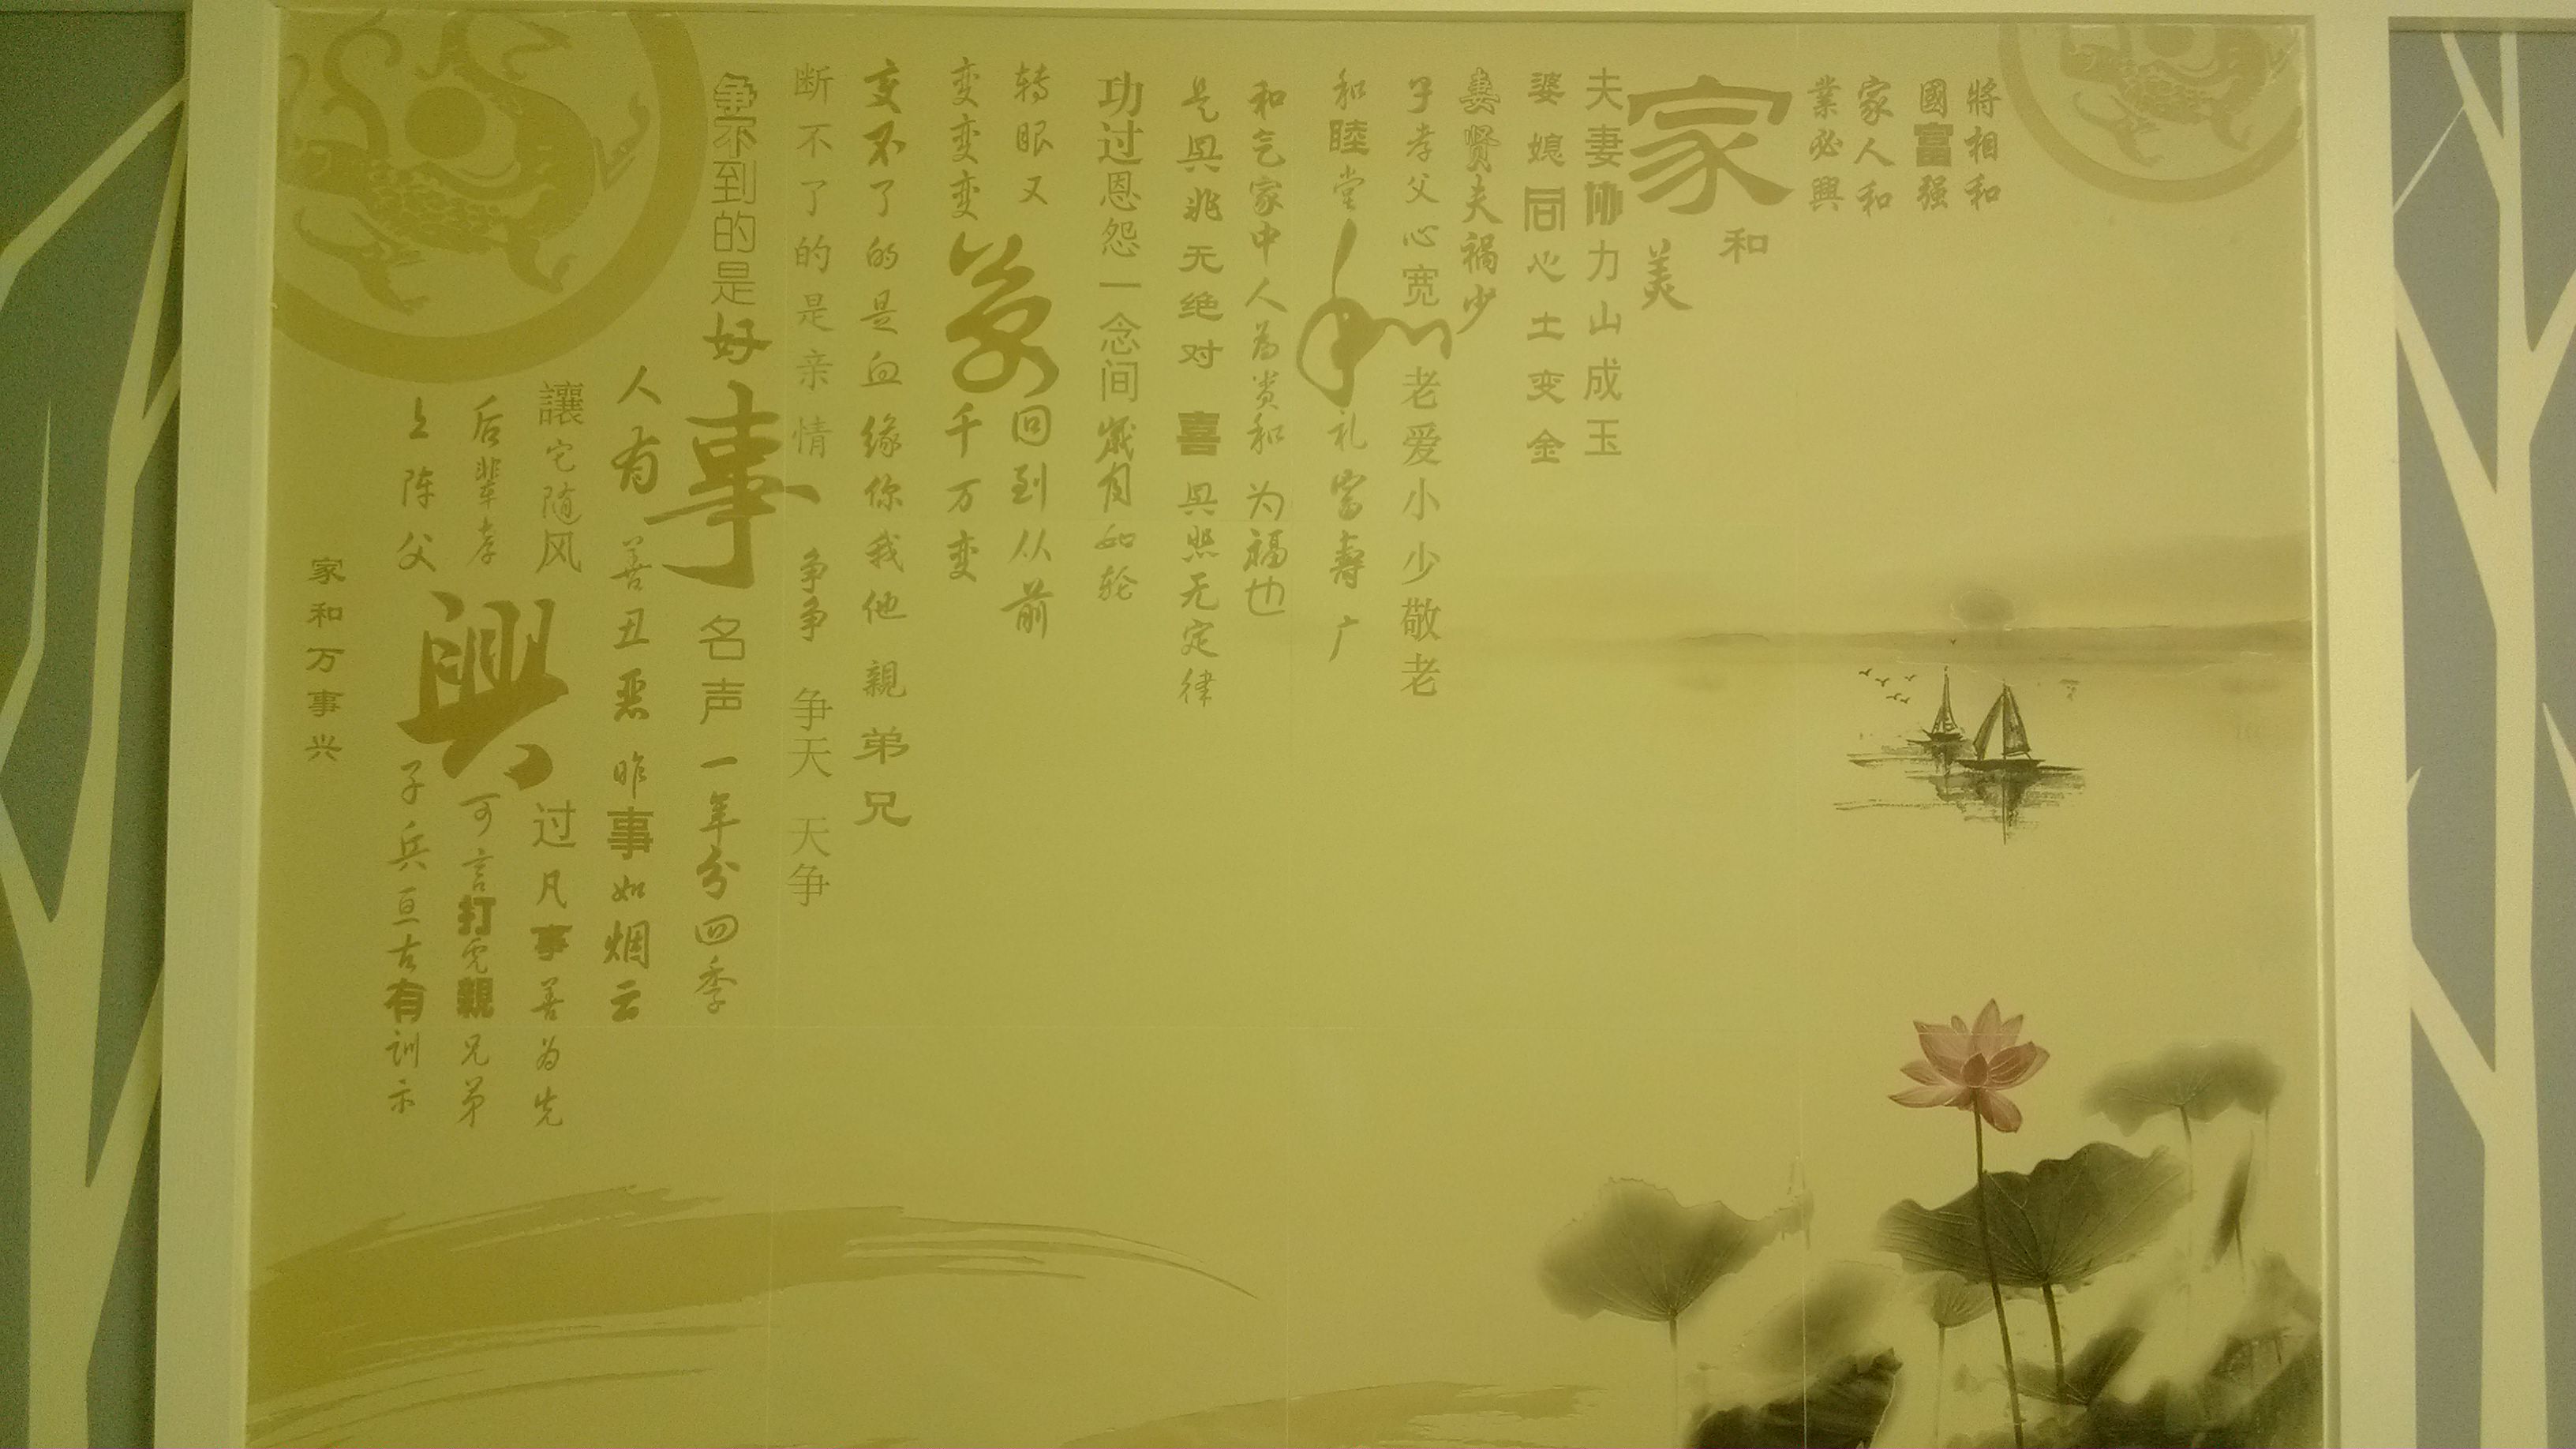 將相和
國富强
家人和
業必興
家和美
夫妻协力山成玉
婆媳同心土变金
妻贤夫祸少
子孝父心宽
老爱小少敬老
和睦堂和礼富寿广
和气家中人为贵和为福也
是與非无绝对喜與悲无定律
功过恩怨一念间岁月如轮
转眼又回到从前
变变变萬千万变
变不了的是血缘你我他親弟兄
断不了的是亲情争争争天天争
争不到的是好事名声一年分四季
人有善丑恶昨事如烟云
讓它随风过凡事善为先
后辈孝興可言打虎親兄弟
上陈父子兵亘古有训示
家和万事兴